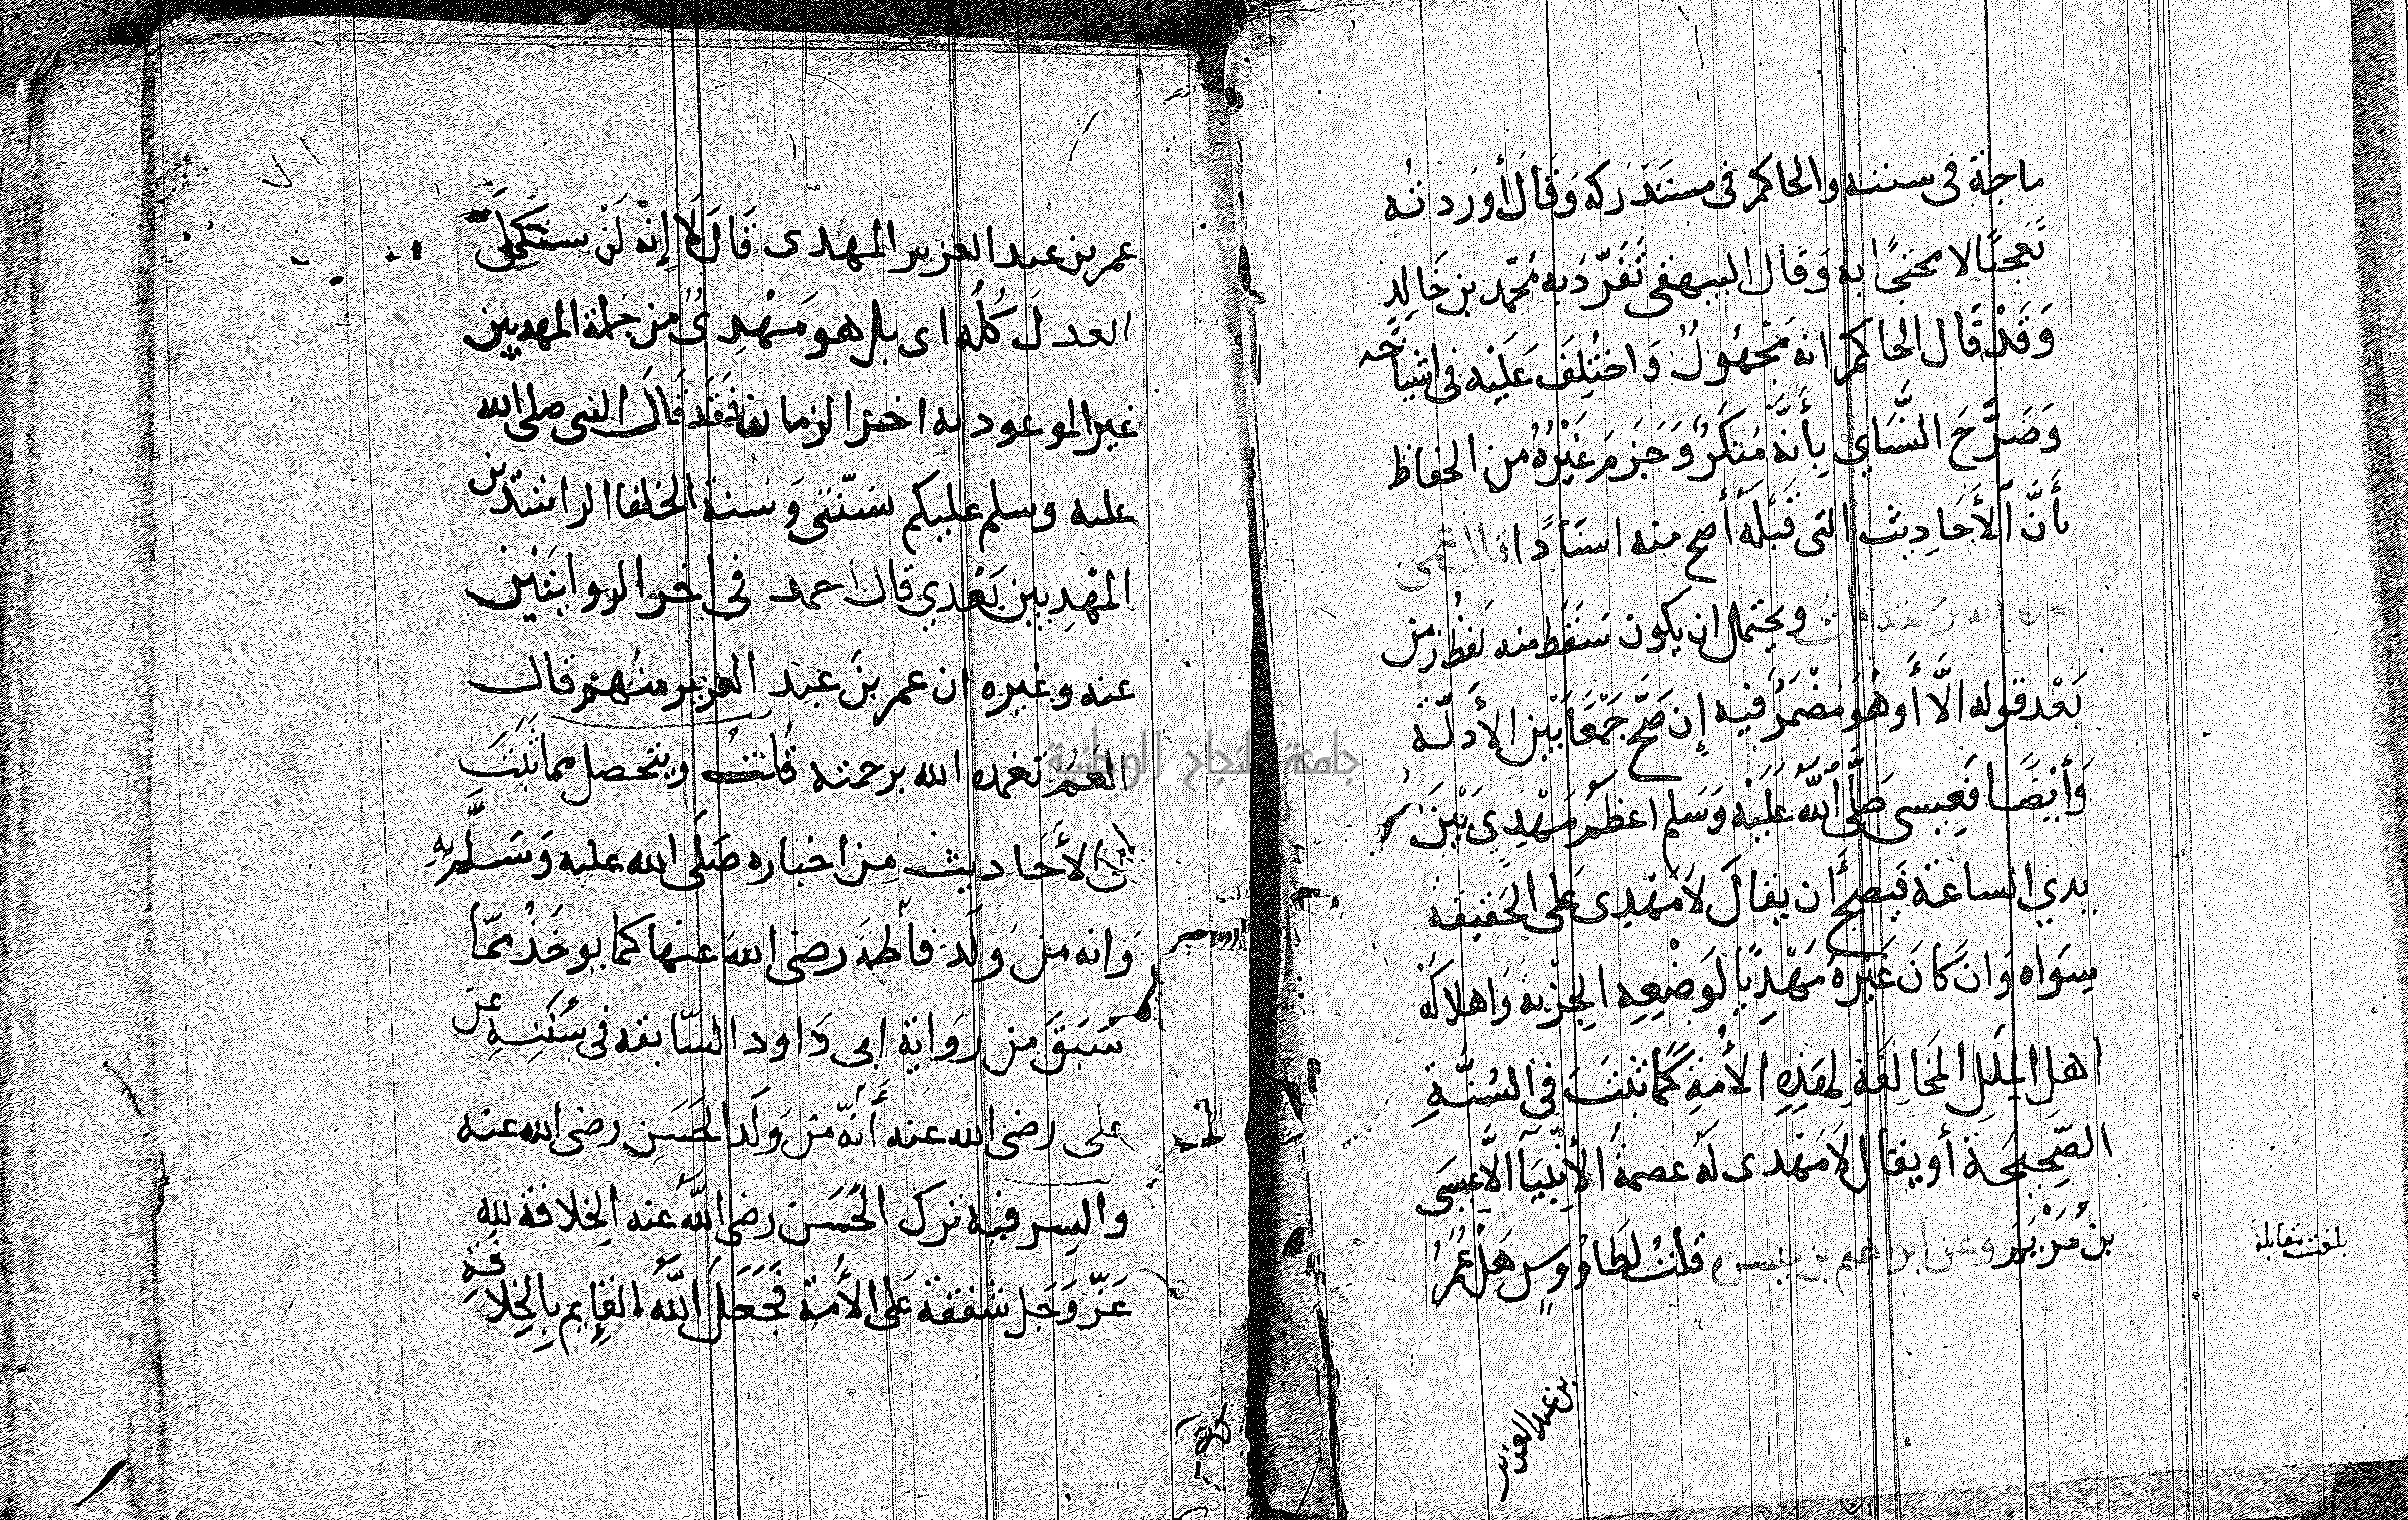 ماجة فى سننه والحاكم فى مستدركه وَقَالَ أورَدته
تَعجبًا لا محتجًا به وَقال البيهقى تَفَرّدَ به مُحمّد بن خَالِدٍ
وَقَدْ قَال الحاكم انه مَجْهُولٌ وَاختُلِفَ عَلَيْه فى
وَصَرَّحَ النَّسَاي بِأَنَّه مُنكَرٌ وَجَزمَ غَيْرُهُ من الحفاظ
بأَنَّ الأَحَادِيث التى قَبْلَهُ أصح منه اسنَادًا قال عمى
رحمته قلت ويحتمل ان يكون سَقَط منه لفظ زمن
بَعْد قوله الَّا أَو هُو مُضْمَرٌ فيه إن صَحَّ جَمْعًا بَيْن الأَدلّة
وَأَيْضًا فَعِيسى صَلَّى اللَّهُ عَلَيْه وَسَلم اعظَم مَهْدِي بَيْنَ
يدي الساعة فيصحُّ أن يقالَ لَا مَهْدِى عَلى الحَقيقة
سِوَاه وَان كَانَ غَيْره مَهْدِيًا لوَضْعِهِ الجِزْيَة وَاهلاكه
اهل المِلَلِ المخَالِفَةِ لهَذِهِ الأُمَّةِ كَمَا ثبتَتْ فى السُنَّةِ
الصَّحِيحَة أو يقال لَا مَهْدى لَه عصمةُ الأنْبِيَآ الا عِيسَى
بنُ مَرْيَمَ وعن ابراهيم بن ميسرة قلتُ لطَاوُوسٍ هَلْ عُمَرُ
بن عبد العزيز
بلغت مقابلة
عمر بن عبد العزيز المهدى قَالَ لَا إِنه لَمْ يستكمل
العدلَ كُلّه اى بل هو مَهْدِىٌّ من جملة المهديين
غير الموعود به اخر الزمان فقد قَالَ النبى صلى الله
عليه وسلم عليكم بسُنّتى وَسُنة الخلفا الراشدين
المهْدِيين بَعْدِي قال احمد فى اخر الروايتَيْن
عنه وغيره ان عمر بنَ عبد العزيز منهم قال
العَمُّ تغمده الله برحمته قُلتُ ويتحصل مما ثَبَتَ
فى الأَحَاديث من اخباره صَلَى الله عليه وَسَلَّم به
وَانه من وَلَد فاطمَة رضى الله عنها كما يوخَذُ ممّا
سَبَقَ من رِوَاية ابى دَاود السّابقه فى سُنَنِهِ عن
على رضى الله عنه أَنّه من وَلَد الحَسَن رضى الله عنه
والسر فيه ترك الحَسَن رضى اللَّهُ عنه الخِلافة لله
عَزّ وَجَل شفقة عَلى الأُمّة فَجَعَلَ اللَّهُ القايم بالخِلافة
جامعة النجاح الوطنية